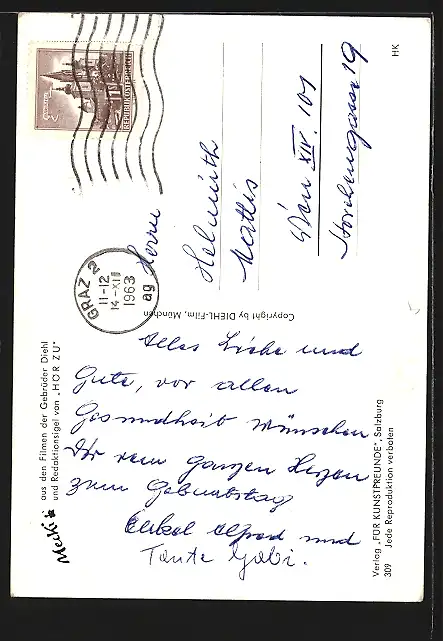 Mecki
aus den Filmen der Gebrüder Diehl
und Redaktionsigel von „HÖR ZU"
Alles Liebe und
Gute, vor allem
Gesundheit wünschen
Dir vom ganzen Herzen
zum Geburtstag
Onkel Alfred und
Tante Gabi.
Verlag „FÜR KUNSTFREUNDE" Salzburg
309 Jede Reproduktion verboten
Copyright by DIEHL-Film, München
REPUBLIK ÖSTERREICH
GRAZ 2
11-12
14-XII
1963
ag
Herrn
Helmuth
Mattis
Wien XIV. 101
19
HK